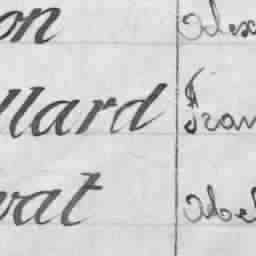 on Alex
llard Fran
vat Abel